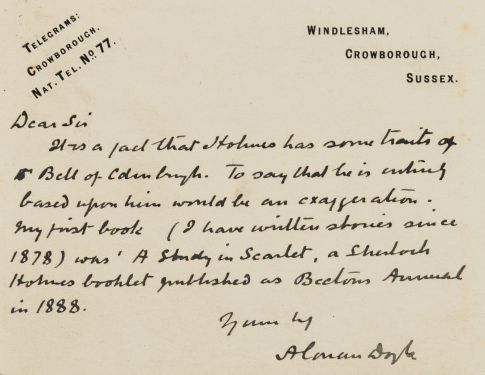 TELEGRAMS:
CROWBOROUGH.
NAT. TEL. NO 77.
WINDLESHAM,
CROWBOROUGH,
SUSSEX.
Dear Sir
It is a fact that Holmes has some traits of
Bell of Edinburgh. To say that he is entirely
based upon him would be an exaggeration.
My first book (I have written stories since
1878) was 'A Study in Scarlet, a Sherlock
Holmes booklet published as Beetons Annual
in 1888.
Yours
A Conan Doyle